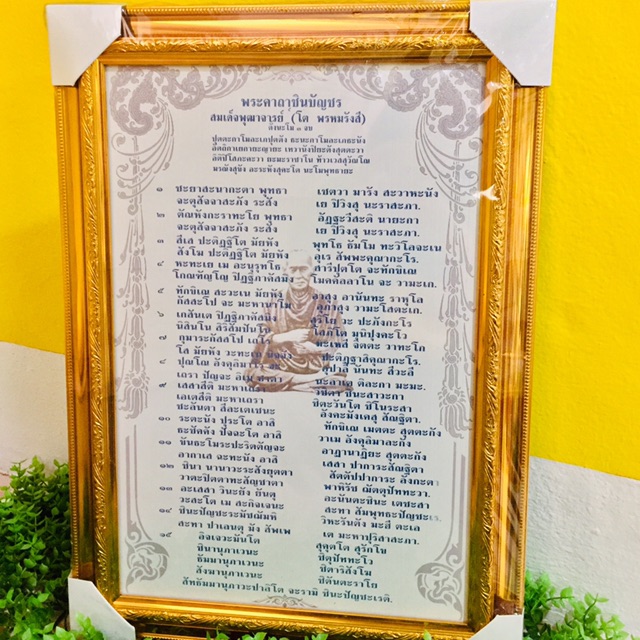 พระคาถาชินบัญชร
สมเด็จพุฒาจารย์ (โต พรหมรังสี)
ตั้งนะโม ๓ จบ
ปุตตะกาโมละเภปุตตัง ธะนะกาโมละเภธะนัง
อัตถิกาเยกายะญายะ เทวานังปิยะตังสุตตะวา
อิติปิโสภะคะวา ยะมะราชาโน ท้าวเวสสุวัณโณ
มรณังสุขัง อะระหังสุคะโต นะโมพุทธายะ
๑ ชะยาสะนากะตา พุทธา เชตวา มารัง สะวาหะนัง
จะตุสัจจาสะภัง ระสัง เย ปิวิงสุ นะราสะภา.
๒ ตัณหังกะราทะโย พุทธา อัฏฐะวีสะติ นายะกา
จะตุสัจจาสะภัง ระสัง เย ปิวิงสุ นะราสะภา.
๓ สีเส ปะติฏฐิโต มัยหัง พุทโธ ธัมโม ทะวิโลจะเน
สังโฆ ปะติฏฐิโต มัยหัง อุเร สัพพะคุณากะโร.
๔ หะทะเย เม อะนุรุทโธ สารีปุตโต จะทักขิเณ
โกณฑัญโญ ปิฏฐิภาคัสมิง โมคคัลลาโน จะ วามะเก.
๕ ทักขิเณ สะวะเน มัยหัง อานันทะ ราหุโล
กัสสะโป จะ มะหานาโม วามะโสตะเก.
๖ เกสันเต ปิฏฐิภาคัสมิง สุริโย ปะภังกะโร
นิสินโน สิริสัมปันโน โสภิโต มุนิปุงคะโว
๗ กุมาระกัสสโป เถโร มะเหสี จิตตะ วาทะโก
โส มัยหัง วะทะเน ปะติฏฐาสิคุณากะโร.
๘ ปุณโณ อังคุลิมาโร จะ อุปาลี นันทะ สีวะลี
เถรา ปัญจะ อิเม ชาตา นะลาเต ติละกา มะมะ.
๙ เสสาสีติ มะหาเถรา วิชิตา ชินะสาวะกา
เอเตสีติ มะหาเถรา ชิตะวันโต ชิโนระสา
ชะลันตา สีละเตเชนะ อังคะมังเคสุ สัณฐิตา.
๑๐ ระตะนัง ปุระโต อาสิ ทักขิเณ เมตตะ สุตตะกัง
ธะชัคคัง ปัจฉะโต อาสิ วาเม อังคุลิมาละกัง
๑๑ ขันธะโมระปะริตตัญจะ อาฏานาฏิยะ สุตตะกัง
อากาเส ฉะทะนัง อาสิ เสสา ปาการะสัณฐิตา
๑๒ ชินา นานาวะระสังยุตตา สัตตัปปาการะ ลังกะตา
วาตะปิตตาทะสัญชาตา พาหิรัช ฌัตตุปัททะวา.
๑๓ อะเสสา วินะยัง ยันตุ อะนันตะชินะ เตชะสา
วะสะโต เม สะกิจเจนะ สะทา สัมพุทธะปัญชะเร.
๑๔ ชินะปัญชะระมัชฌัมหิ วิหะรันตัง มะฮี ตะเล
สะทา ปาเลนตุ มัง สัพเพ เต มะหาปุริสาสะภา.
๑๕ อิจเจวะมันโต สุคุตโต สุรักโข
ชินานุภาเวนะ ชิตุปัททะโว
ธัมมานุภาเวนะ ชิตาริสังโฆ
สังฆานุภาเวนะ ชิตันตะราโย
สัทธัมมานุภาวะปาลิโต จะรามิ ชินะปัญชะเรติ.